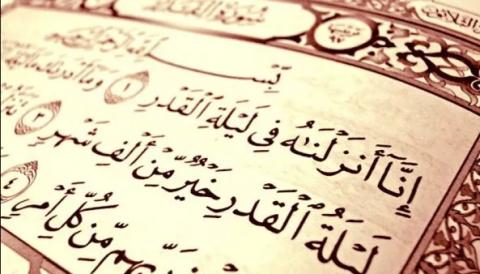 سُورَةُ القَدْرِ
بِسْمِ اللَّهِ الرَّحْمَٰنِ الرَّحِيمِ
إِنَّآ أَنزَلْنَٰهُ فِى لَيْلَةِ ٱلْقَدْرِ ١ وَمَآ أَدْرَىٰكَ
لَيْلَةُ ٱلْقَدْرِ خَيْرٌ مِّنْ أَلْفِ شَهْرٍ ٣
رَبِّهِم مِّن كُلِّ أَمْرٍ ٤